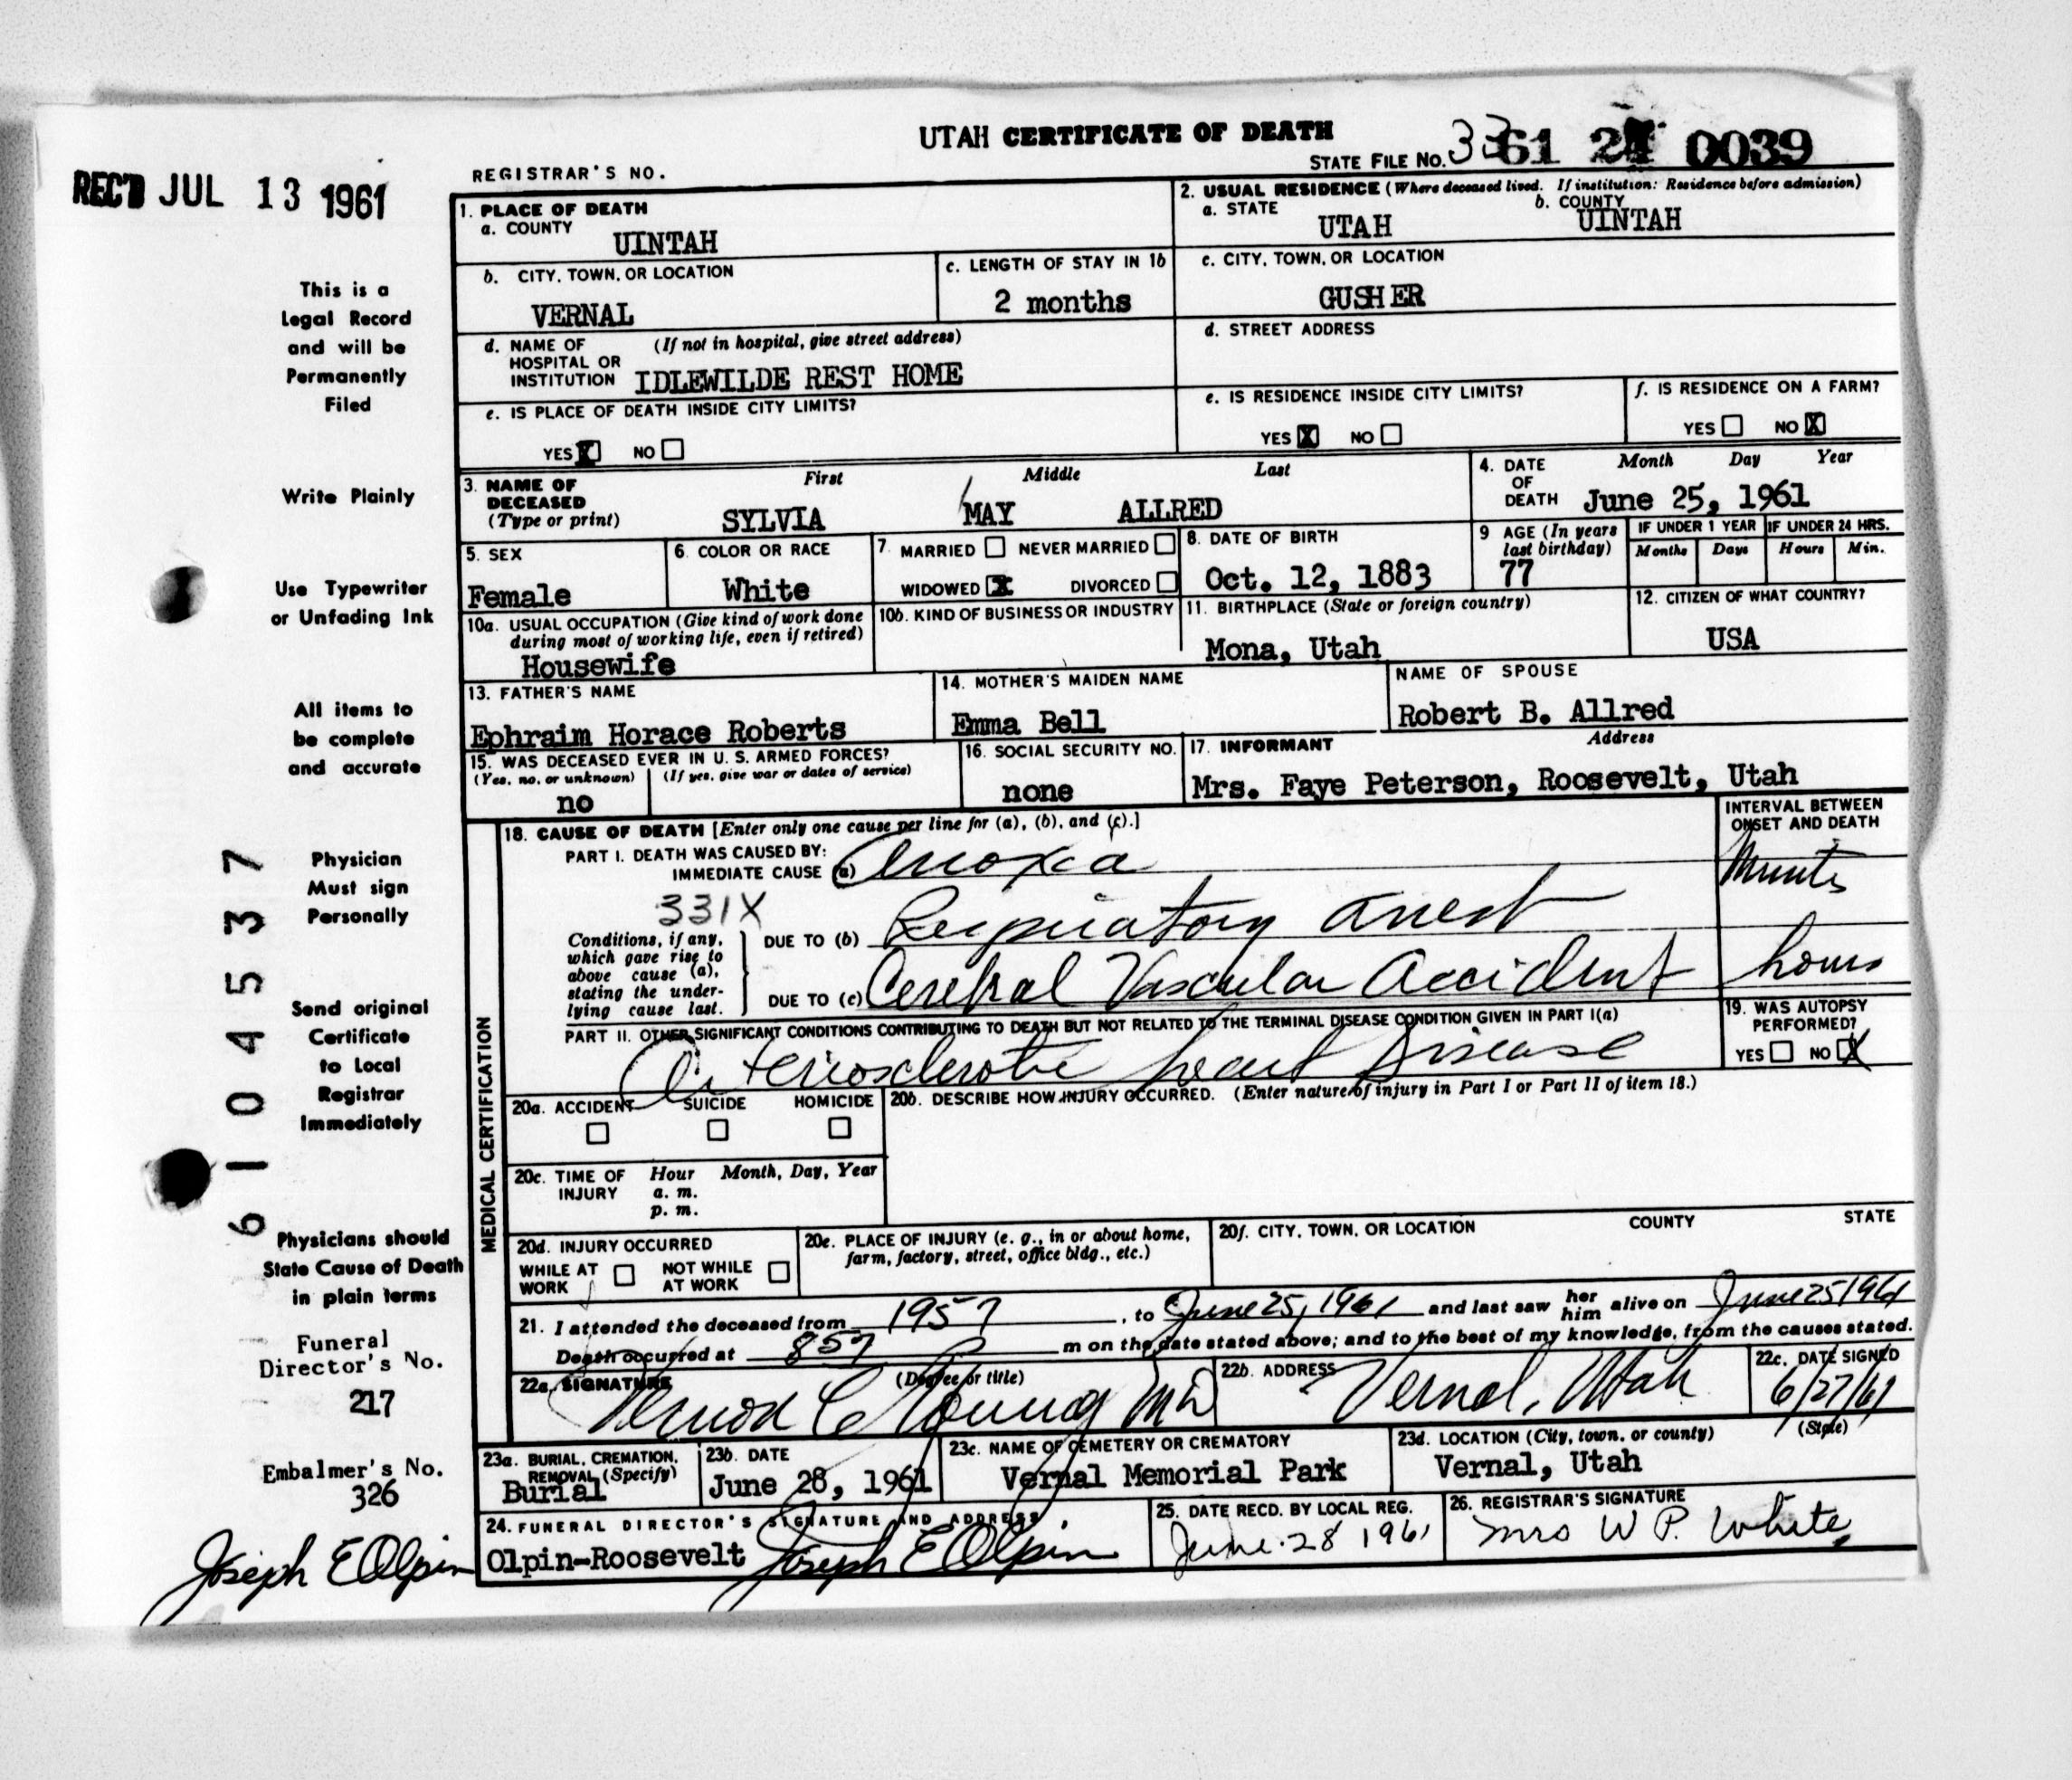 UTAH CERTIFICATE OF DEATH
REC'D JUL 13 1961
REGISTRAR'S NO.
STATE FILE NO. 33 61 24 0039
1. PLACE OF DEATH
a. COUNTY
UINTAH
2. USUAL RESIDENCE (Where deceased lived. If institution: Residence before admission)
a. STATE
UTAH
b. COUNTY
UINTAH
b. CITY, TOWN, OR LOCATION
VERNAL
c. LENGTH OF STAY IN 1b
2 months
c. CITY, TOWN, OR LOCATION
GUSHER
d. NAME OF HOSPITAL OR INSTITUTION
(If not in hospital, give street address)
IDLEWILDE REST HOME
d. STREET ADDRESS
e. IS PLACE OF DEATH INSIDE CITY LIMITS?
YES X NO
e. IS RESIDENCE INSIDE CITY LIMITS?
YES X NO
f. IS RESIDENCE ON A FARM?
YES NO X
3. NAME OF DECEASED
(Type or print)
First Middle Last
SYLVIA MAY ALLRED
4. DATE OF DEATH
Month Day Year
June 25, 1961
5. SEX
Female
6. COLOR OR RACE
White
7. MARRIED NEVER MARRIED
WIDOWED X DIVORCED
8. DATE OF BIRTH
Oct. 12, 1883
9 AGE (In years last birthday)
77
IF UNDER 1 YEAR
Months Days
IF UNDER 24 HRS.
Hours Min.
10a. USUAL OCCUPATION (Give kind of work done during most of working life, even if retired)
Housewife
10b. KIND OF BUSINESS OR INDUSTRY
11. BIRTHPLACE (State or foreign country)
Mona, Utah
12. CITIZEN OF WHAT COUNTRY?
USA
13. FATHER'S NAME
Ephraim Horace Roberts
14. MOTHER'S MAIDEN NAME
Emma Bell
NAME OF SPOUSE
Robert B. Allred
15. WAS DECEASED EVER IN U. S. ARMED FORCES?
(Yes, no, or unknown) (If yes, give war or dates of service)
no
16. SOCIAL SECURITY NO.
none
17. INFORMANT Address
Mrs. Faye Peterson, Roosevelt, Utah
MEDICAL CERTIFICATION
18. CAUSE OF DEATH [Enter only one cause per line for (a), (b), and (c).]
INTERVAL BETWEEN ONSET AND DEATH
PART I. DEATH WAS CAUSED BY:
IMMEDIATE CAUSE (a) Anoxia
Minuts
331X
Conditions, if any, which gave rise to above cause (a), stating the underlying cause last.
DUE TO (b) Respiratory arrest
DUE TO (c) Cerebral Vascular Accident
hours
PART II. OTHER SIGNIFICANT CONDITIONS CONTRIBUTING TO DEATH BUT NOT RELATED TO THE TERMINAL DISEASE CONDITION GIVEN IN PART I(a)
Arteriosclerotic heart Disease
19. WAS AUTOPSY PERFORMED?
YES NO X
20a. ACCIDENT SUICIDE HOMICIDE
20b. DESCRIBE HOW INJURY OCCURRED. (Enter nature of injury in Part I or Part II of item 18.)
20c. TIME OF INJURY
Hour Month, Day, Year
a. m.
p. m.
20d. INJURY OCCURRED
WHILE AT WORK NOT WHILE AT WORK
20e. PLACE OF INJURY (e. g., in or about home, farm, factory, street, office bldg., etc.)
20f. CITY, TOWN, OR LOCATION COUNTY STATE
21. I attended the deceased from 1957, to June 25, 1961 and last saw her him alive on June 25 1961
Death occurred at 857 P m on the date stated above; and to the best of my knowledge, from the causes stated.
22a. SIGNATURE (Degree or title)
Young MD
22b. ADDRESS
Vernal, Utah
22c. DATE SIGNED
6/27/61
23a. BURIAL, CREMATION, REMOVAL (Specify)
Burial
23b. DATE
June 28, 1961
23c. NAME OF CEMETERY OR CREMATORY
Vernal Memorial Park
23d. LOCATION (City, town, or county) (State)
Vernal, Utah
24. FUNERAL DIRECTOR'S SIGNATURE AND ADDRESS
Olpin-Roosevelt Joseph E Olpin
25. DATE RECD. BY LOCAL REG.
June 28 1961
26. REGISTRAR'S SIGNATURE
Mrs W P. White
This is a
Legal Record
and will be
Permanently
Filed
Write Plainly
Use Typewriter
or Unfading Ink
All items to
be complete
and accurate
Physician
Must sign
Personally
Send original
Certificate
to Local
Registrar
Immediately
Physicians should
State Cause of Death
in plain terms
Funeral
Director's No.
217
Embalmer's No.
326
Joseph E Olpin
61 04537